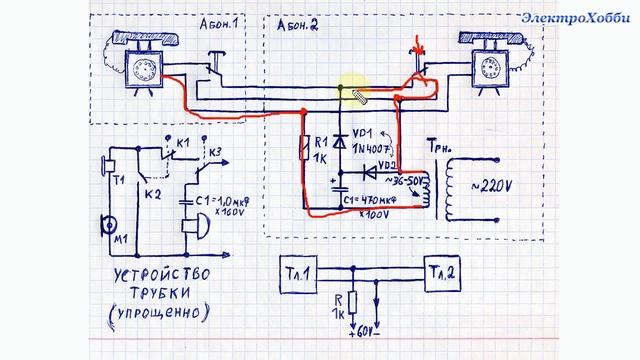 ЭлектроХобби
Абон.1
Абон.2
R1
1К
VD1
1N4007
VD2
Трн.
~36-50V
~220V
+
C1=470мкф
×100V
К1
К3
Т1
К2
C1=1,0мкф
×160V
М1
УСТРОЙСТВО
ТРУБКИ
(упрощенно)
Тл.1
Тл.2
R
1к
+60V−